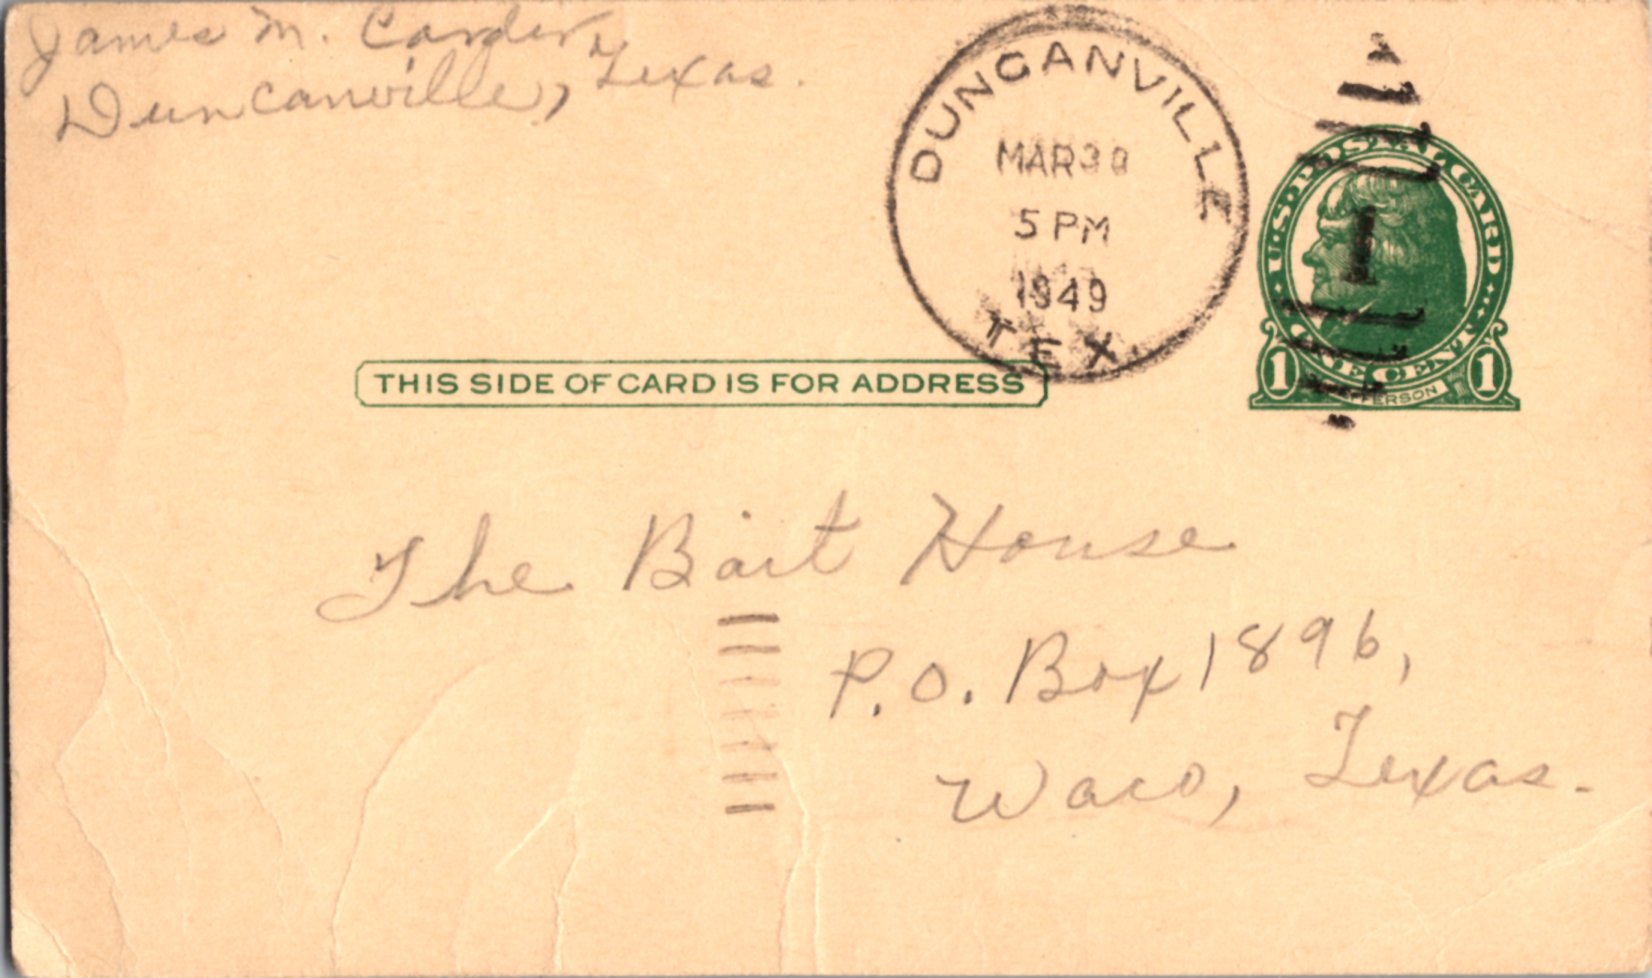 James M. Carder
Duncanville, Texas.
DUNCANVILLE
MAR 30
5 PM
1949
TEX.
U.S. POSTAL CARD
1
ONE CENT
1 JEFFERSON 1
THIS SIDE OF CARD IS FOR ADDRESS
The Bait House
P.O. Box 1896,
Waco, Texas.